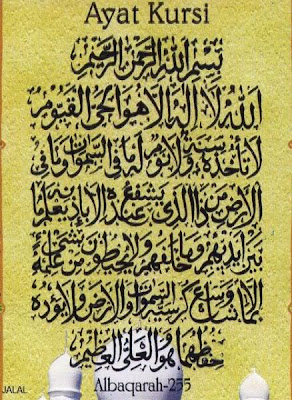 Ayat Kursi
بِسْمِ اللهِ الرَّحْمٰنِ الرَّحِيْمِ
اَللهُ لَا اِلٰهَ اِلَّا هُوَ الْحَيُّ الْقَيُّوْمُ
لَا تَأْخُذُهُ سِنَةٌ وَلَا نَوْمٌ لَهُ مَا فِي السَّمٰوَاتِ وَمَا فِي
الْاَرْضِ مَنْ ذَا الَّذِيْ يَشْفَعُ عِنْدَهُ اِلَّا بِاِذْنِهِ يَعْلَمُ مَا
بَيْنَ اَيْدِيْهِمْ وَمَا خَلْفَهُمْ وَلَا يُحِيْطُوْنَ بِشَيْءٍ مِنْ عِلْمِهِ
اِلَّا بِمَا شَاءَ وَسِعَ كُرْسِيُّهُ السَّمٰوَاتِ وَالْاَرْضَ وَلَا يَؤُدُهُ
حِفْظُهُمَا وَهُوَ الْعَلِيُّ الْعَظِيْمُ
Albaqarah-255
JALAL